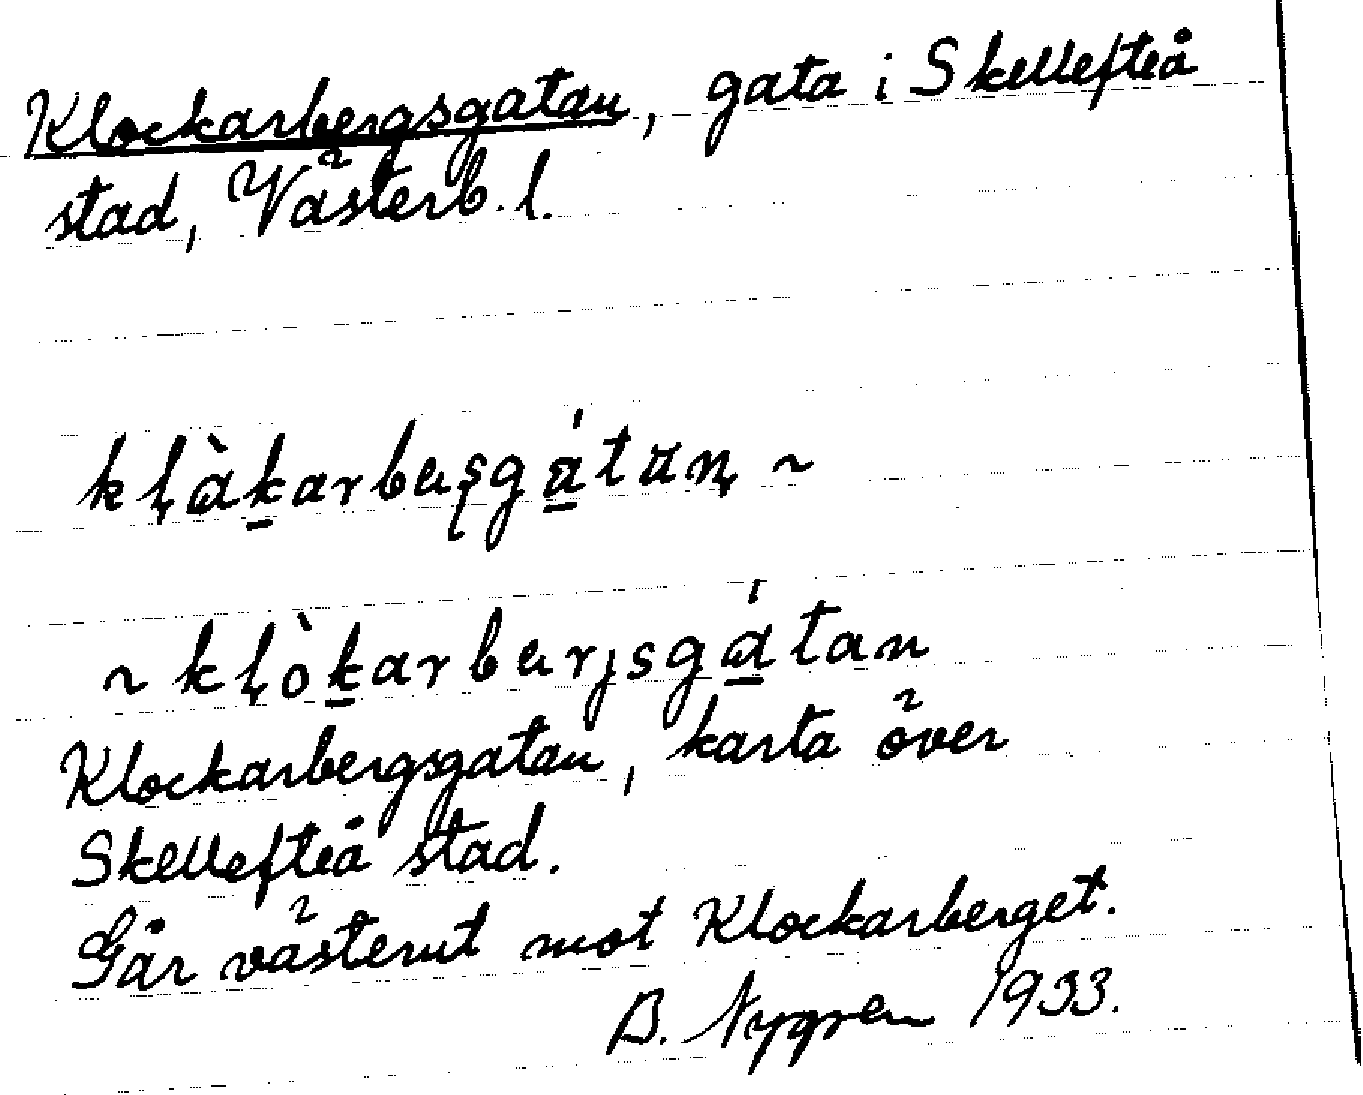 Klockarbergsgatan, gata i Skellefteå
stad, Västerb. l.
kḷàk̲arbeʂgá̲taṇ ~
~ kḷòk̲arberjsgá̲tan
Klockarbergsgatan, karta över
Skellefteå stad.
Går västerut mot Klockarberget.
B. Nygren 1933.